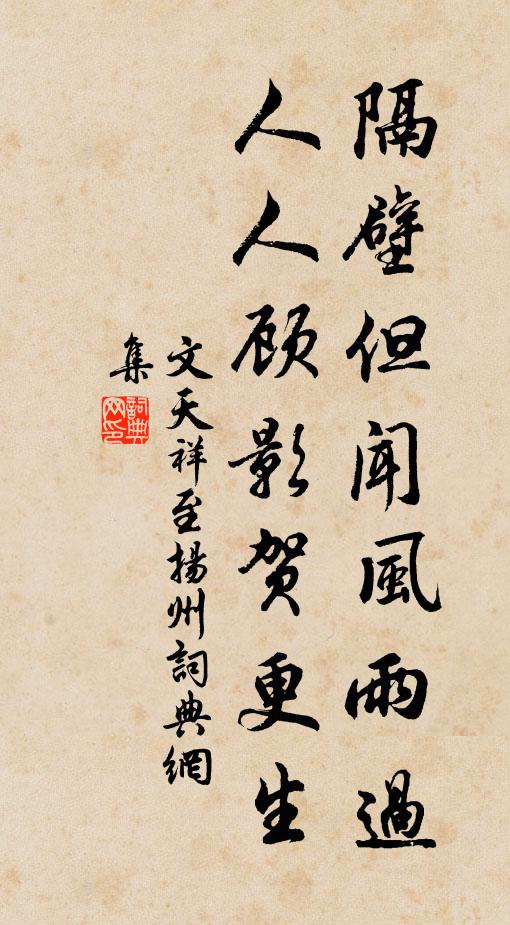 隔壁但闻風雨過
人人顾影贺更生
文天祥至揚州詞典網
集
詞典
网印